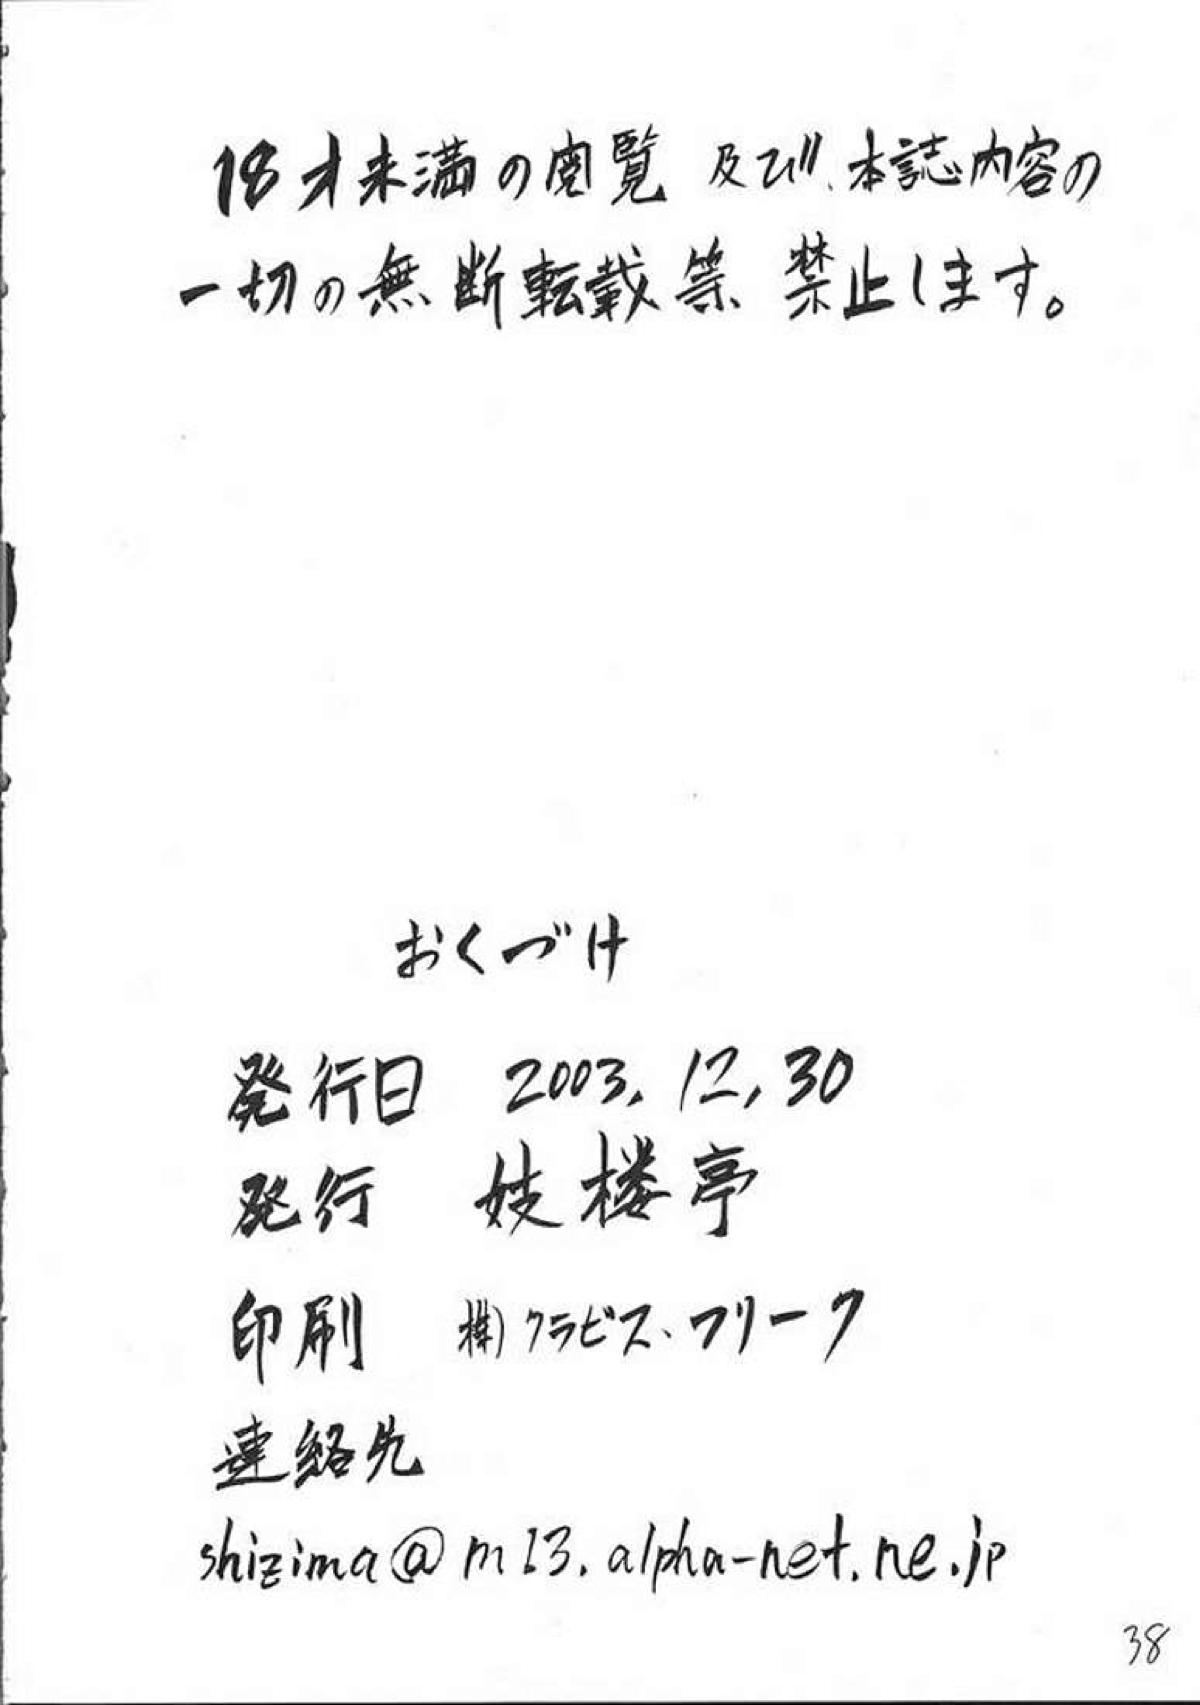 18才未満の閲覧 及び、本誌内容の
一切の無断転載等、禁止します。
おくづけ
発行日 2003.12.30
発行 妓楼亭
印刷 (株)クラビス・フリーク
連絡先
shizima@m13.alpha-net.ne.jp
38